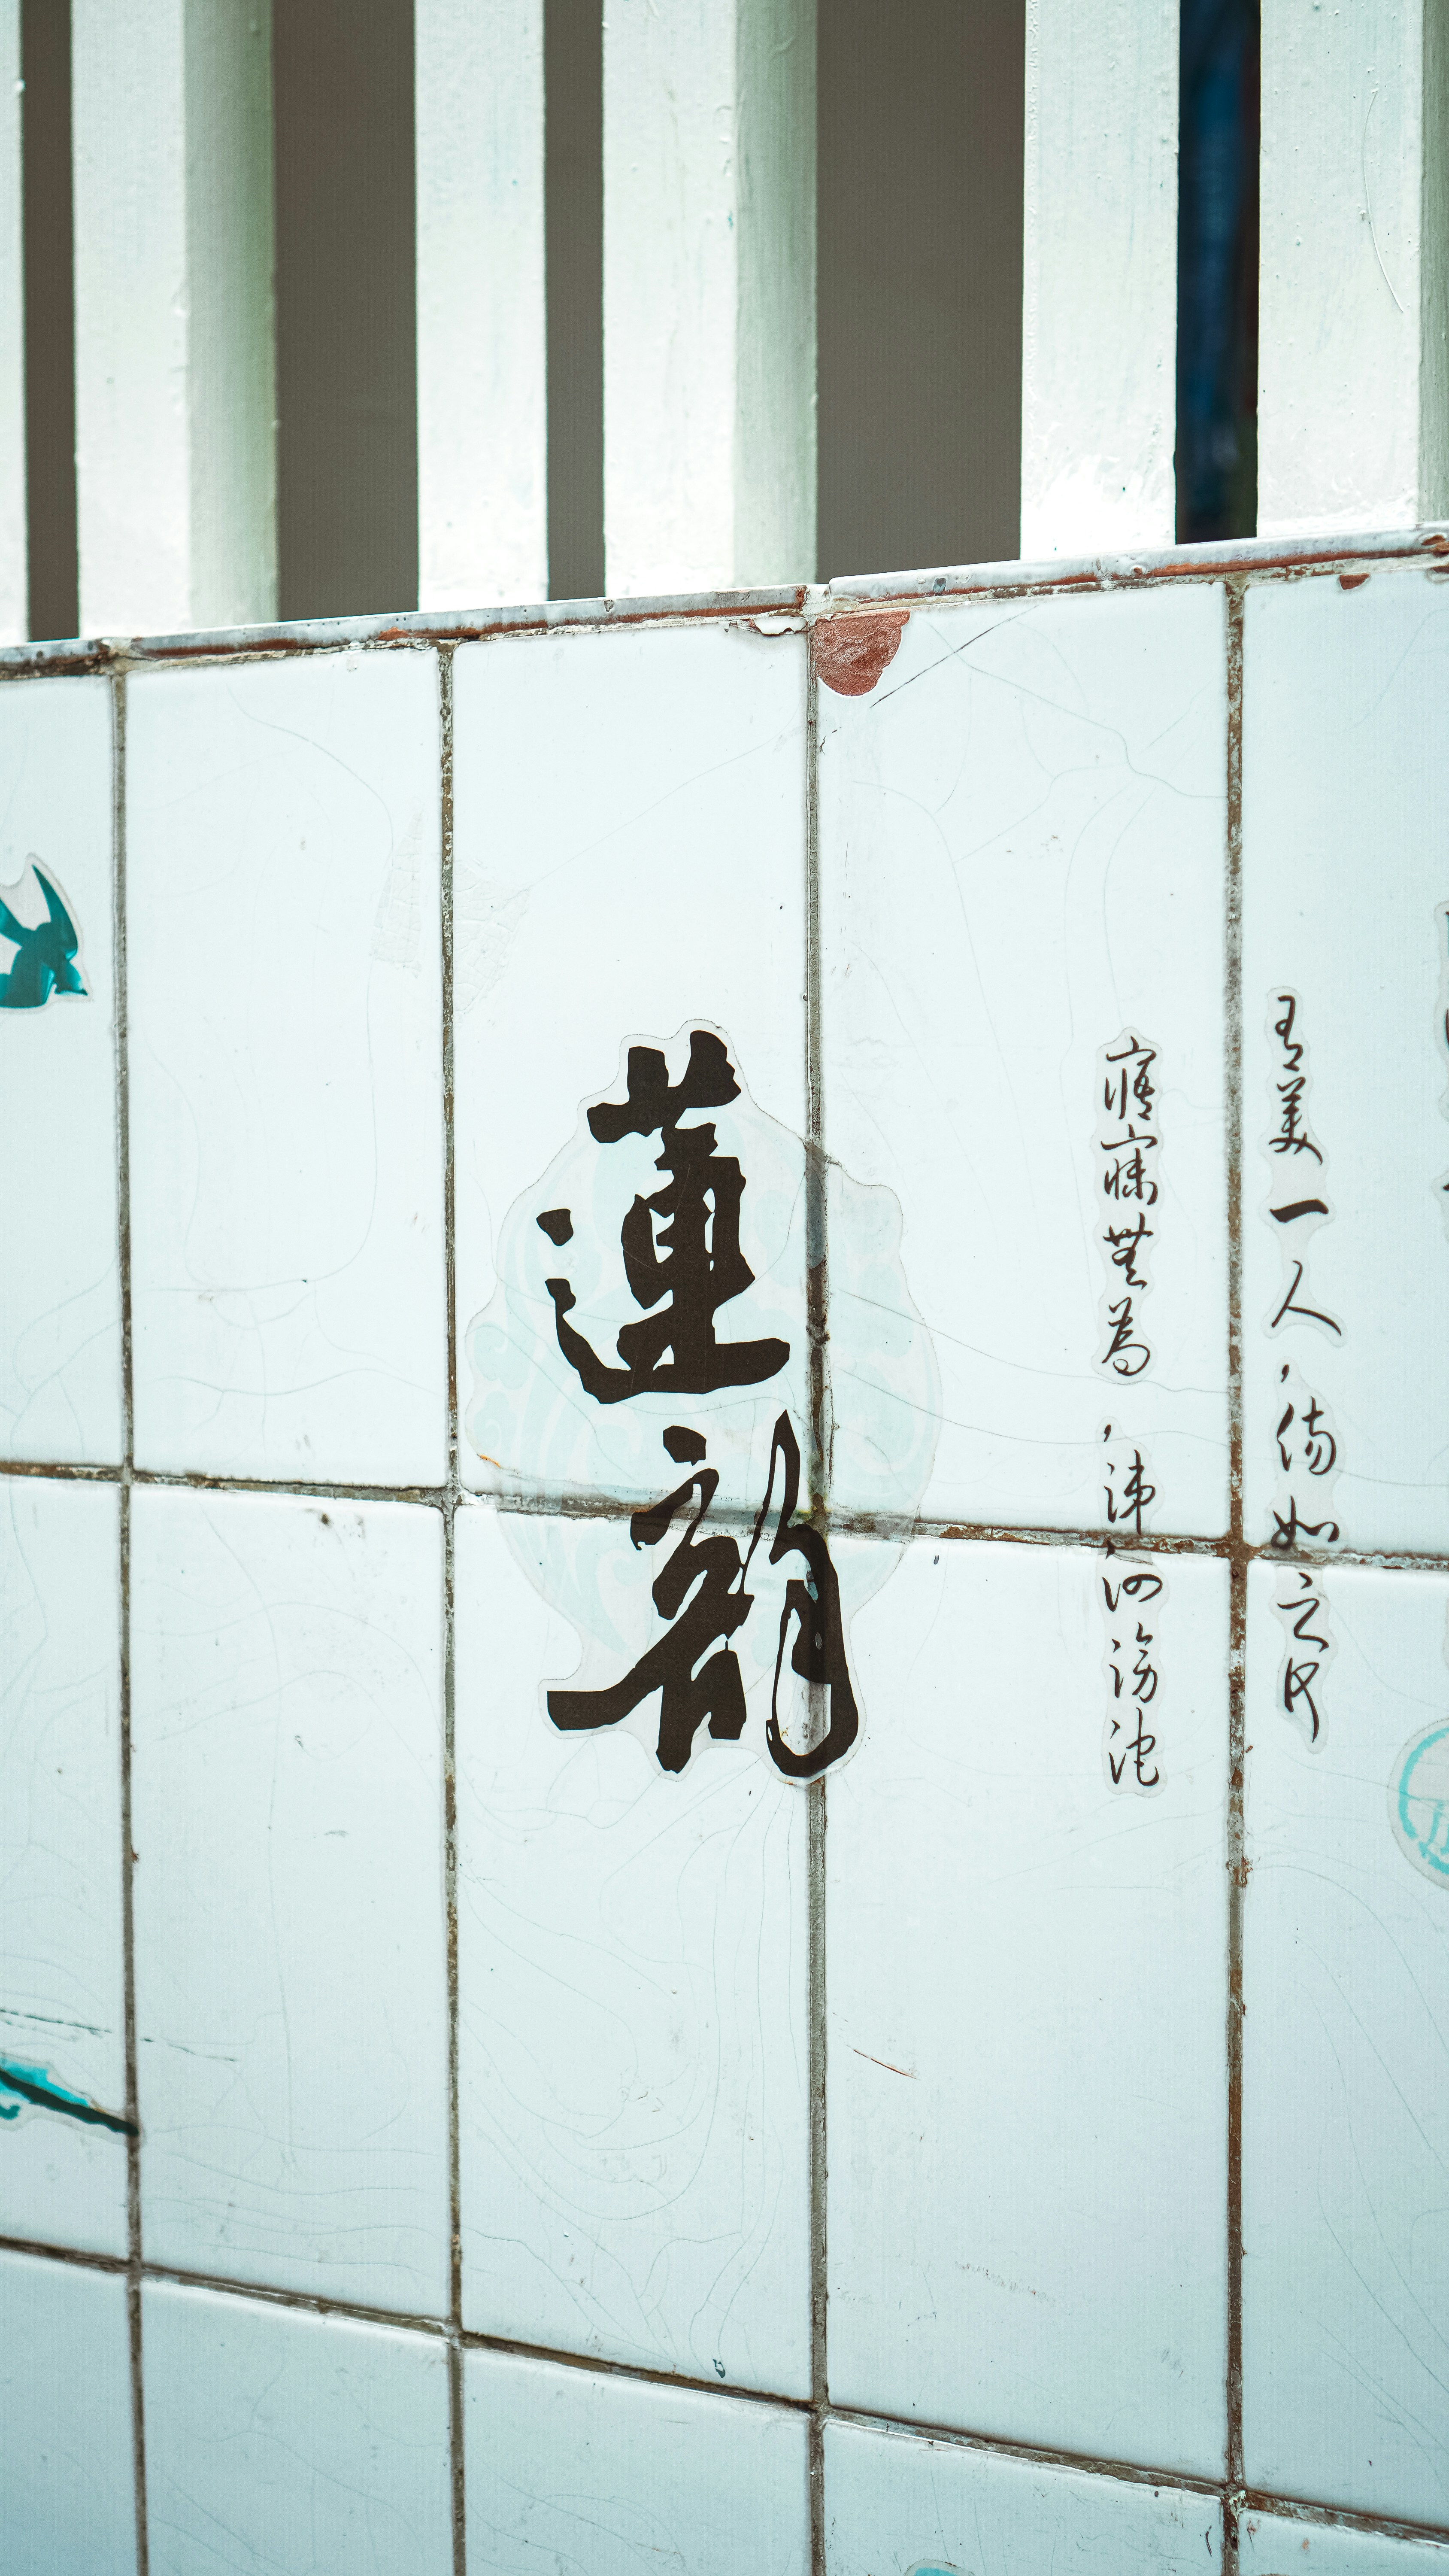 有美一人，傷如之何
寤寐無為，涕泗滂沱
蓮韵